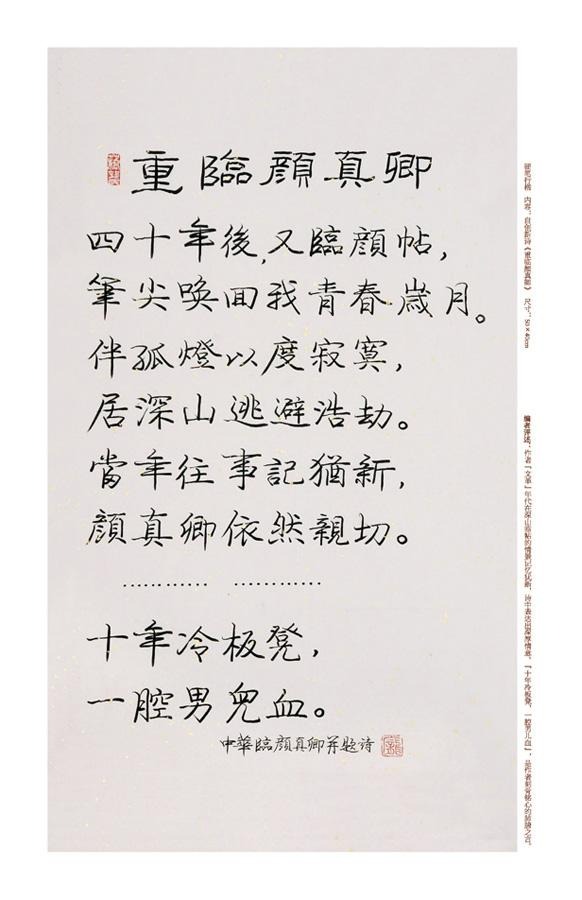 重臨顔真卿
四十年後,又臨顔帖,
筆尖喚回我青春歲月。
伴孤燈以度寂寞,
居深山逃避浩劫。
當年往事記猶新,
顔真卿依然親切。
………… …………
十年冷板凳,
一腔男兒血。
中華臨顔真卿并題詩
硬笔行楷 内容：自创新诗《重临颜真卿》 尺寸：50×40cm
编者评述：作者「文革」年代在深山临帖的情景记忆犹新，诗中表达出深厚情意，「十年冷板凳，一腔男儿血」，是作者刻骨铭心的肺腑之言。